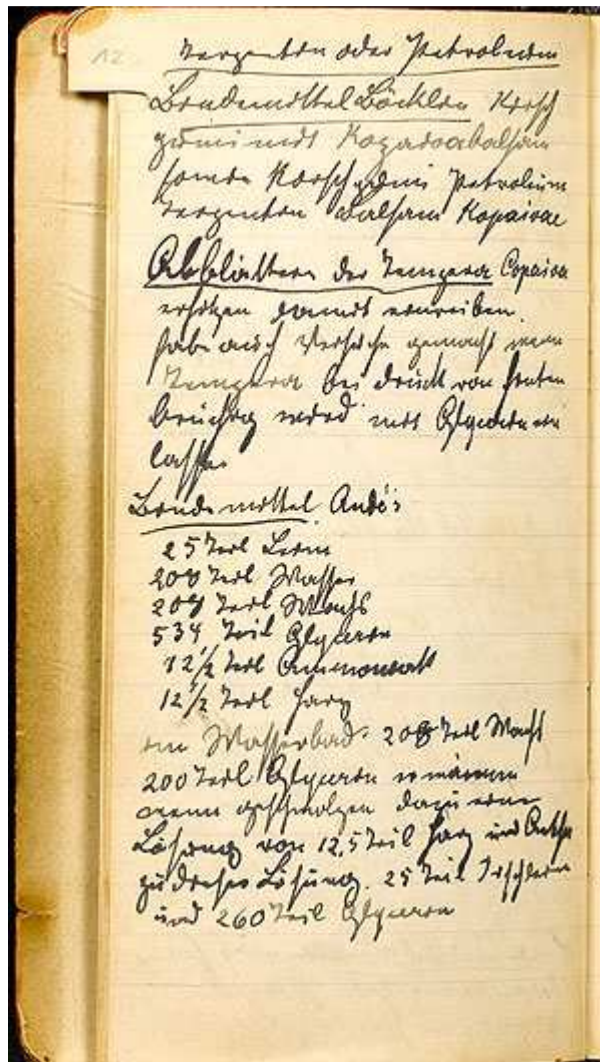 12
Terpentin oder Petroleum
Bindemittel Böcklin Kirsch
gumi mit Kopaivabalsam
Kirschgumi Petrolium
Terpentin Balsam Kopaivae
Abblättern der Tempera Copaiva
erhitzen damit einreiben.
habe auch Versuche gemacht wenn
Tempera bei druck von hinten
brüchig wird mit Glycerin ein
lassen
Bindemittel Andés
25 Teil Leim
200 Teil Wasser
200 Teil Wachs
534 Teil Glycerin
12 1/2 Teil Ammoniak
12 1/2 Teil Harz
im Wasserbad 200 Teil Wachs
200 Teil Glycerin erwärmen
wenn geschmolzen dazu eine
Lösung von 12,5 Teil Harz und
zu dieser Lösung. 25 Teil Tischleim
und 260 Teil Glycerin